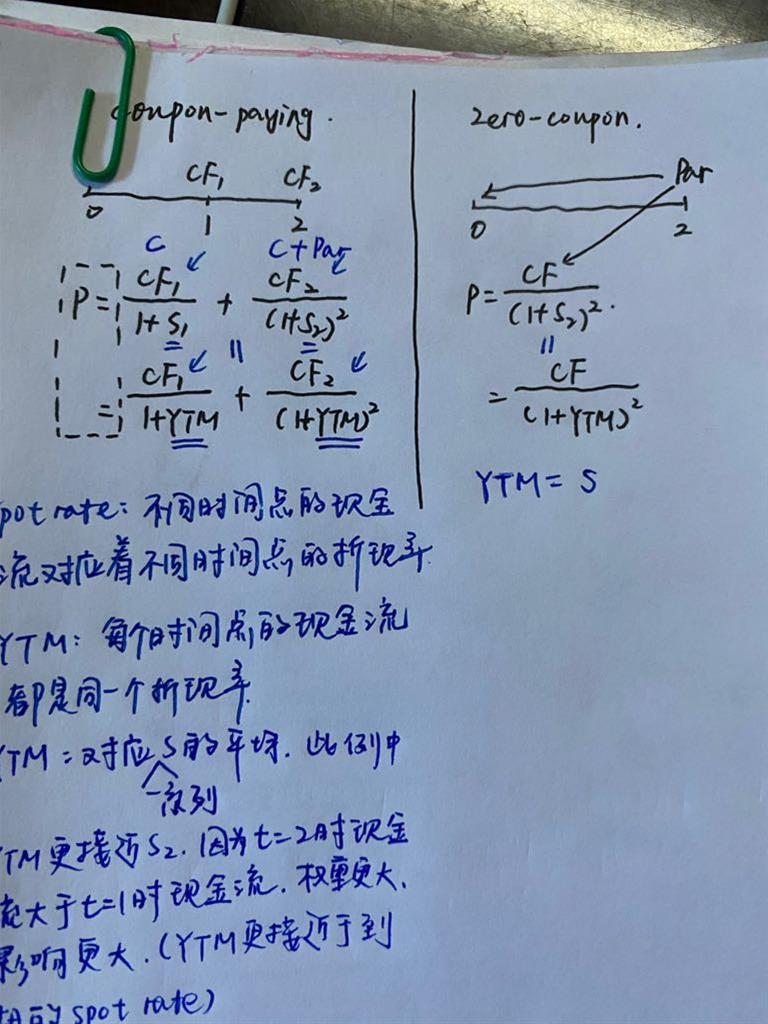 coupon-paying.
CF₁ CF₂
0 1 2
C C+Par
P = CF₁/(1+S₁) + CF₂/(1+S₂)²
= CF₁/(1+YTM) + CF₂/(1+YTM)²
pot rate: 不同时间点的现金
流对应着不同时间点的折现率.
YTM: 每个时间点的现金流
都是同一个折现率.
TM = 对应S的平均. 此例中
一系列
TM更接近S₂. 因为t=2时现金
流大于t=1时现金流. 权重更大.
影响更大. (YTM更接近于到
期的spot rate)
zero-coupon.
Par
0 2
P = CF/(1+S₂)².
= CF/(1+YTM)²
YTM = S